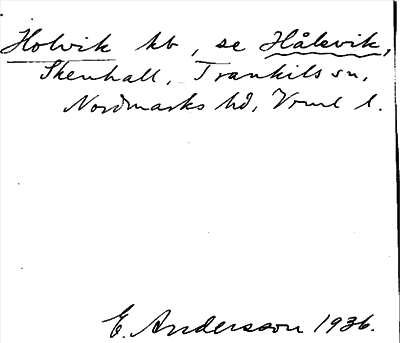 Holvik kb, se Hålsvik,
Skenhall, Trankils sn,
Nordmarks hd, Vrml l.
E. Andersson 1936.